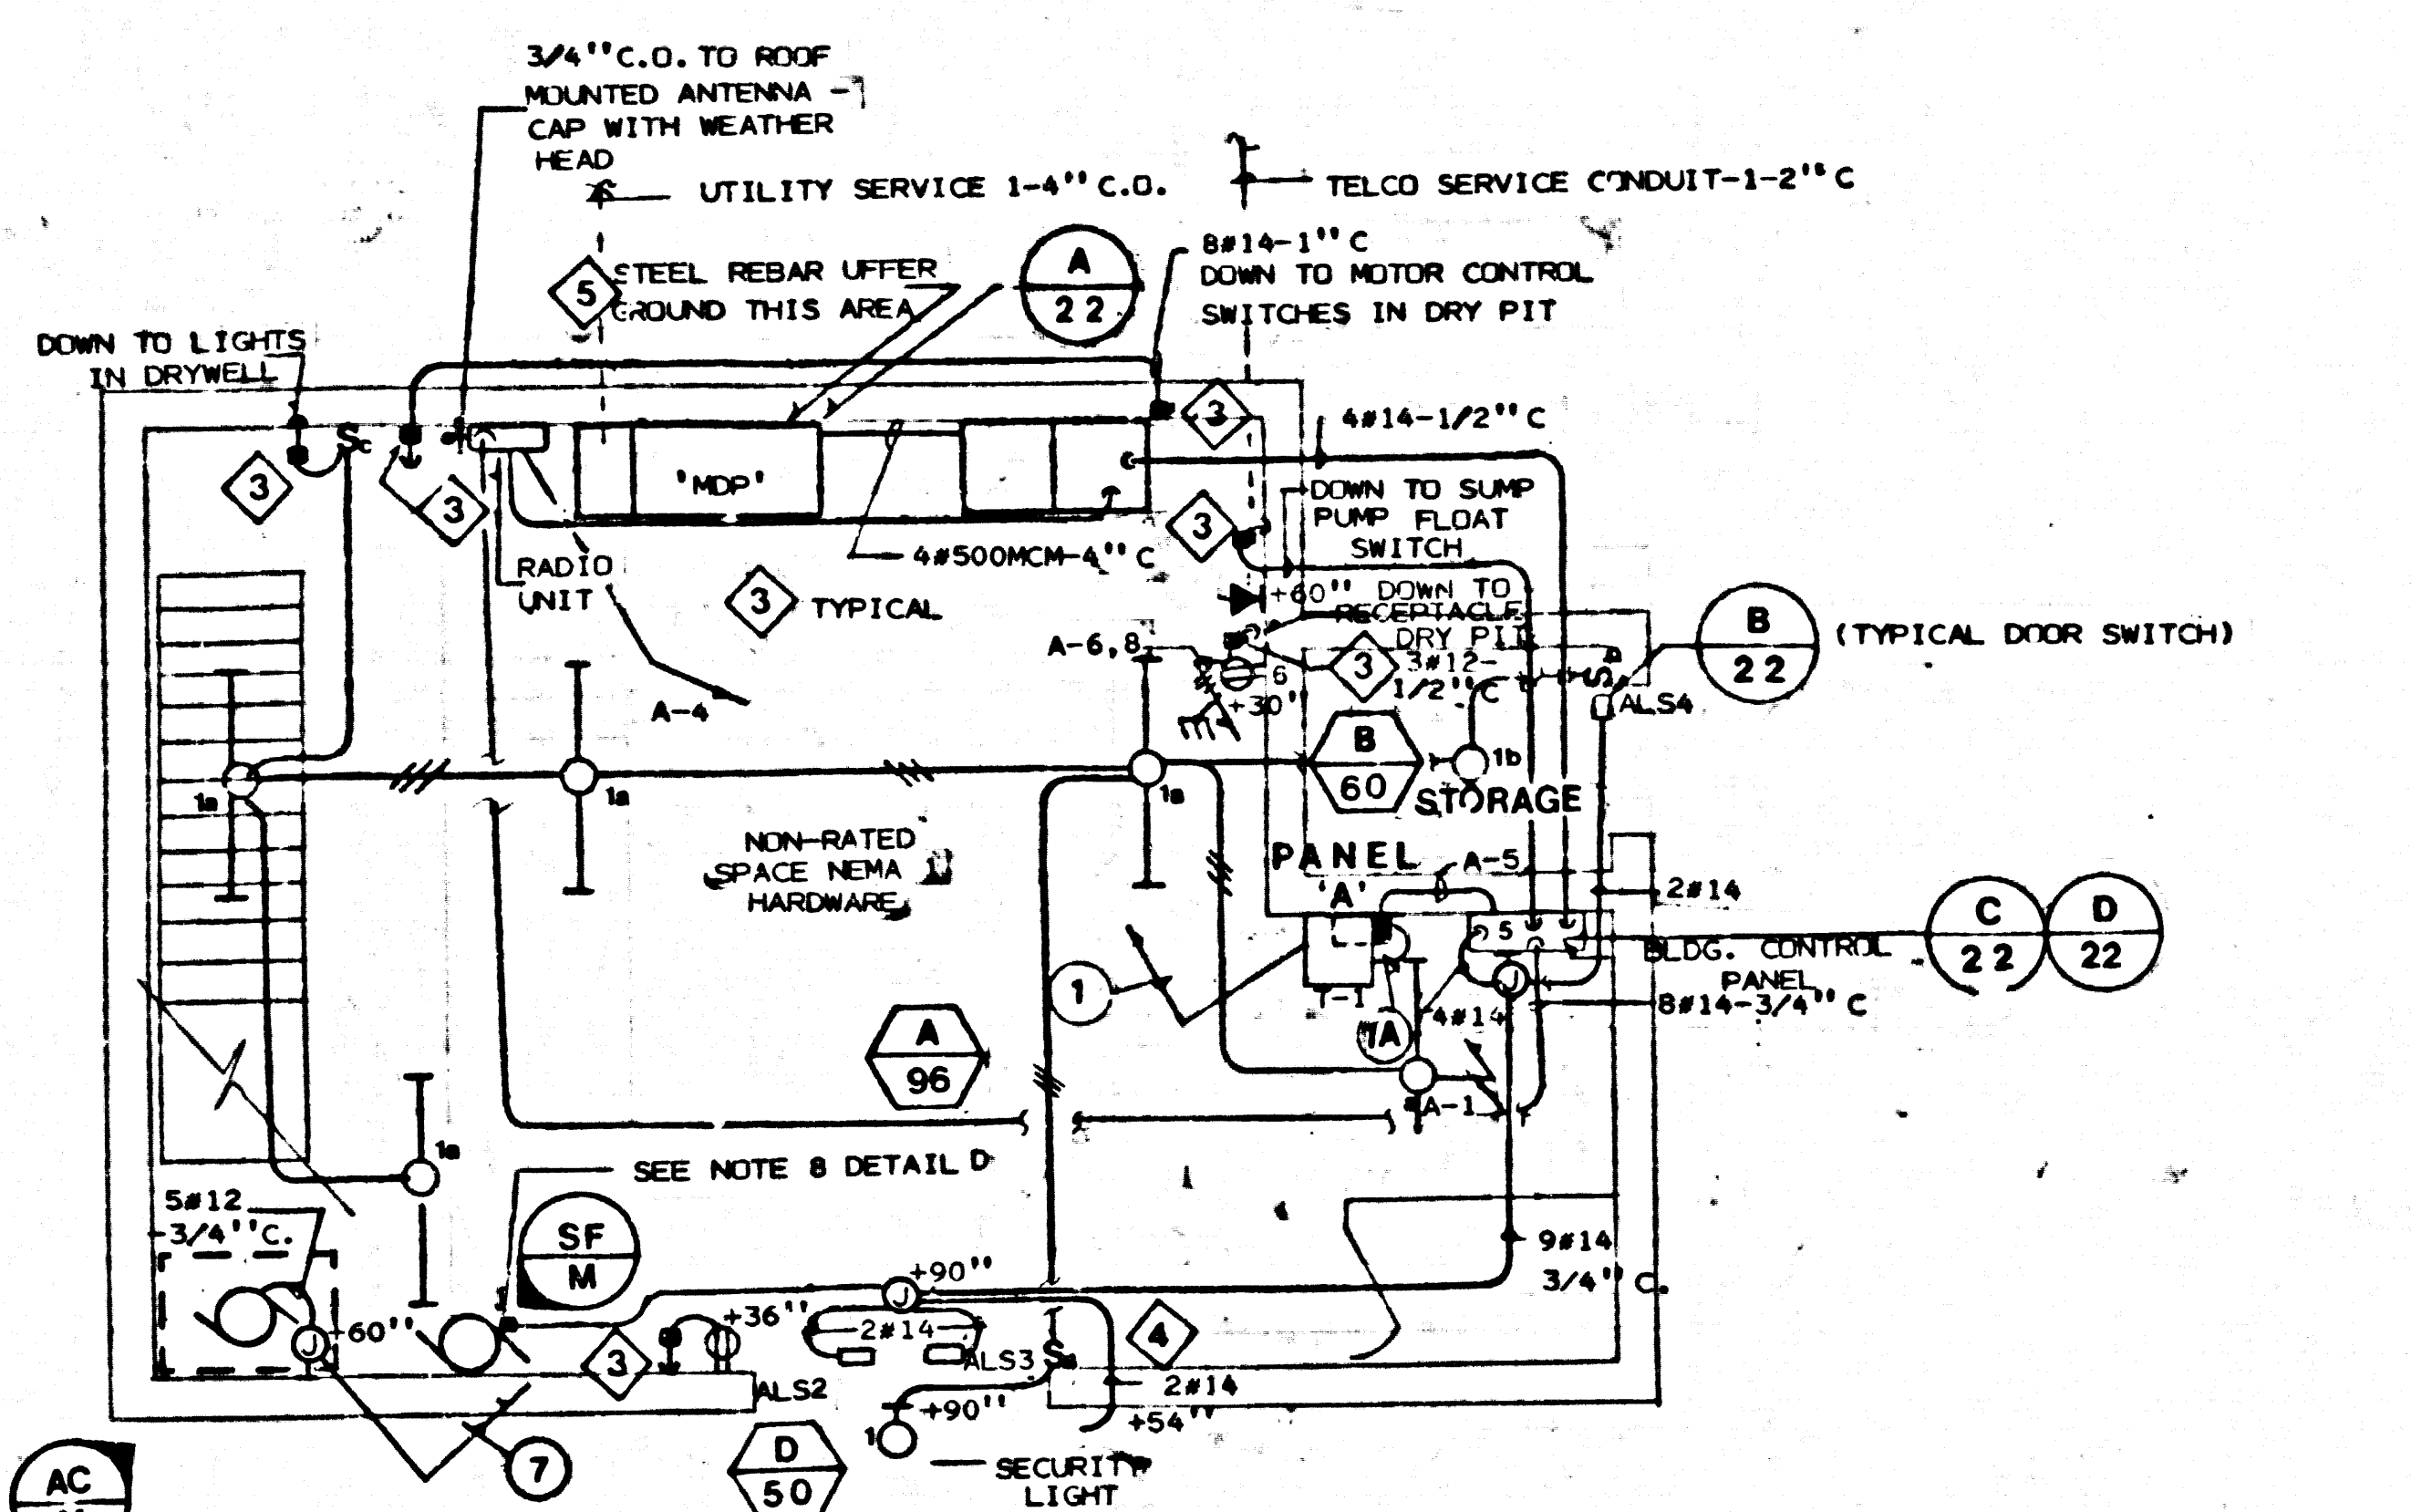 3/4''C.O. TO ROOF
MOUNTED ANTENNA -
CAP WITH WEATHER
HEAD
UTILITY SERVICE 1-4''C.O.
TELCO SERVICE CONDUIT-1-2''C
5
STEEL REBAR UFFER
GROUND THIS AREA
A
22
8#14-1''C
DOWN TO MOTOR CONTROL
SWITCHES IN DRY PIT
DOWN TO LIGHTS
IN DRYWELL
Sc
3
3
'MDP'
3
4#14-1/2''C
3
DOWN TO SUMP
PUMP FLOAT
SWITCH
4#500MCM-4''C
RADIO
UNIT
3
TYPICAL
+60''
DOWN TO
RECEPTACLE
DRY PIT
A-6,8
6
+30''
3
3#12-
1/2''C
B
22
(TYPICAL DOOR SWITCH)
ALS4
A-4
1a
1a
1a
B
60
1b
STORAGE
NON-RATED
SPACE NEMA 1
HARDWARE
PANEL
'A'
A-5
2#14
5
C
22
D
22
BLDG. CONTROL
PANEL
J
8#14-3/4''C
1
T-1
1A
4#14
A
96
A-1
1a
SEE NOTE 8 DETAIL D
5#12
-3/4''C.
SF
M
9#14
3/4''C.
+90''
J
+36''
2#14
J
+60''
3
ALS3
4
ALS2
2#14
+90''
+54''
1
7
D
50
SECURITY
LIGHT
AC